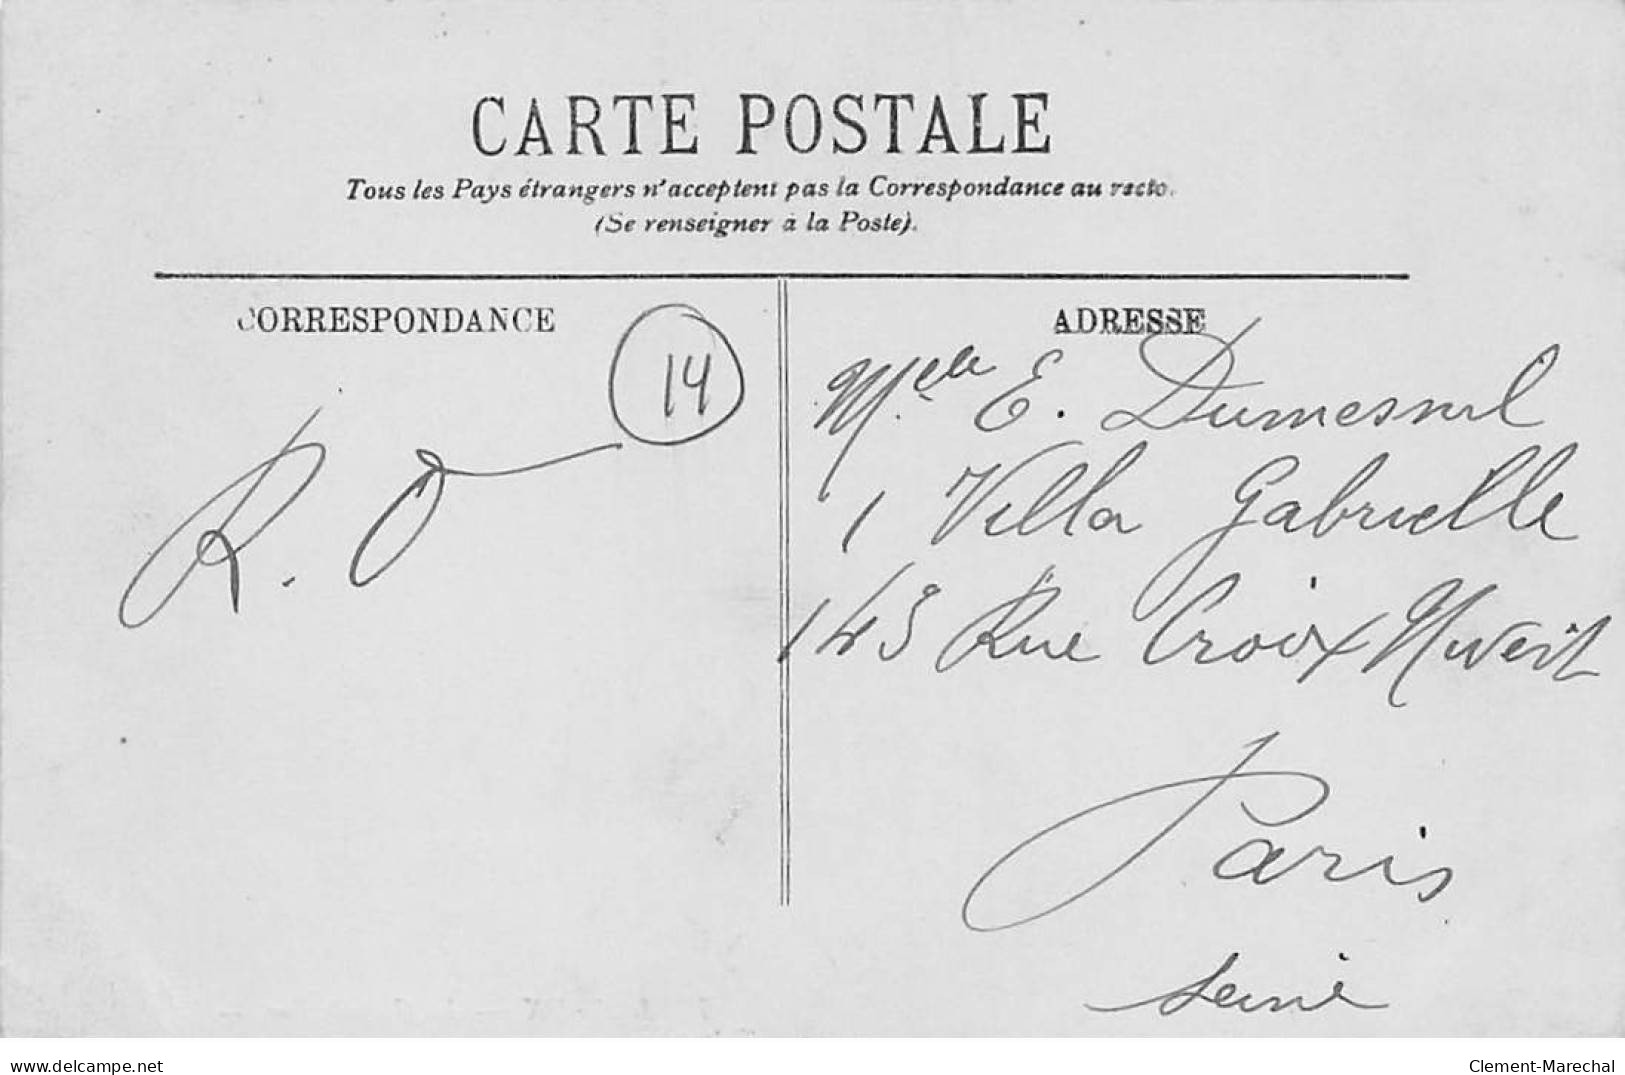 CARTE POSTALE
Tous les Pays étrangers n'acceptent pas la Correspondance au recto.
(Se renseigner à la Poste).
CORRESPONDANCE
14
R. O
ADRESSE
Melle E. Dumesnil
1 Villa Gabrielle
143 Rue Croix Nivert
Paris
Seine
www.delcampe.net
Clement-Marechal